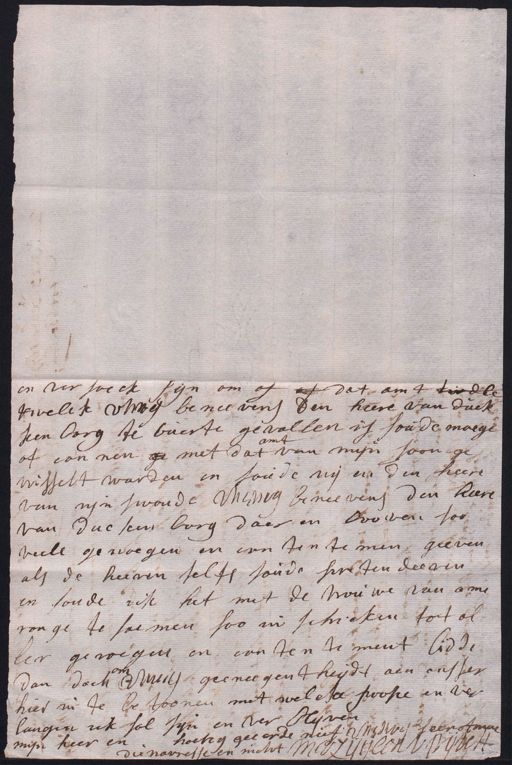 en ver soeck sijn om of dat amt
twelck vhwg beneevens den heere van duck
sen borg te buerte gevallen is soude moege
of connen met dat amt van mijn soon ge
wisselt warden en soude vij en den heere
van mijn swoude beneevens den heere
van duc sen borg daer en booven soo
veele genoegen en contentement geeven
als de heeren selfs soude pretendeeren
en soude ick het met de vrouwe van ame
ronge te saemen soo in schicken tot al
ler genoegen en contentement bidde
dan doch om geneegentheijdt aen onsser
hier in te betoonen met welcke hoope en ver
langen ick sal sijn en ver blijven
mijn heer en hoog geeerde neef
dienaresse en nicht